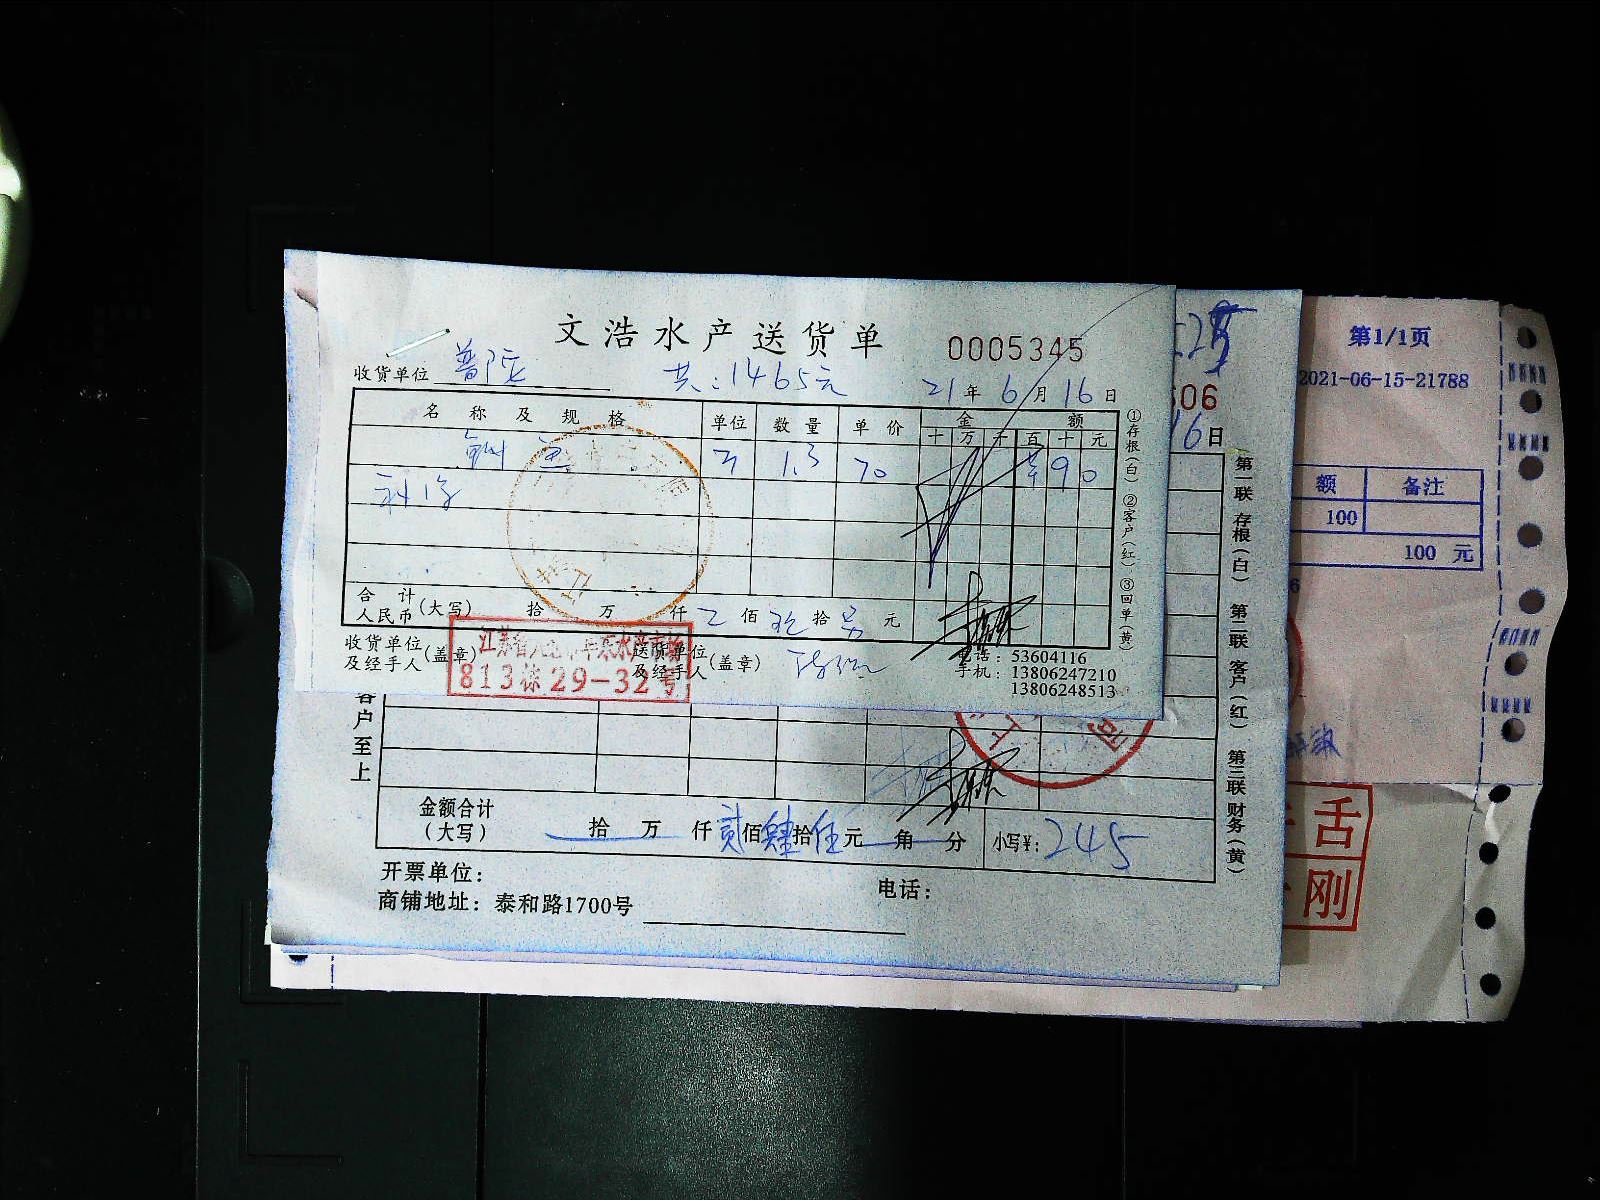 文浩水产送货单
0005345
收货单位 普陀
共:1465元
21年6月16日
名称及规格 单位 数量 单价 金额
十 万 千 百 十 元
1.3 70 90
合计
人民币(大写) 拾 万 仟 佰 拾 元
收货单位
及经手人(盖章)
送货单位
及经手人(盖章)
813栋29-32号
电话:53604116
手机:13806247210
13806248513
①存根(白) ②客户(红) ③回单(黄)
606
16日
第一联 存根(白) 第二联 客户(红) 第三联 财务(黄)
客户至上
金额合计
(大写)
拾 万 仟 贰佰肆拾伍元 角 分
小写¥: 245
开票单位:
电话:
商铺地址: 泰和路1700号
第1/1页
2021-06-15-21788
额 备注
100
100 元
舌
刚